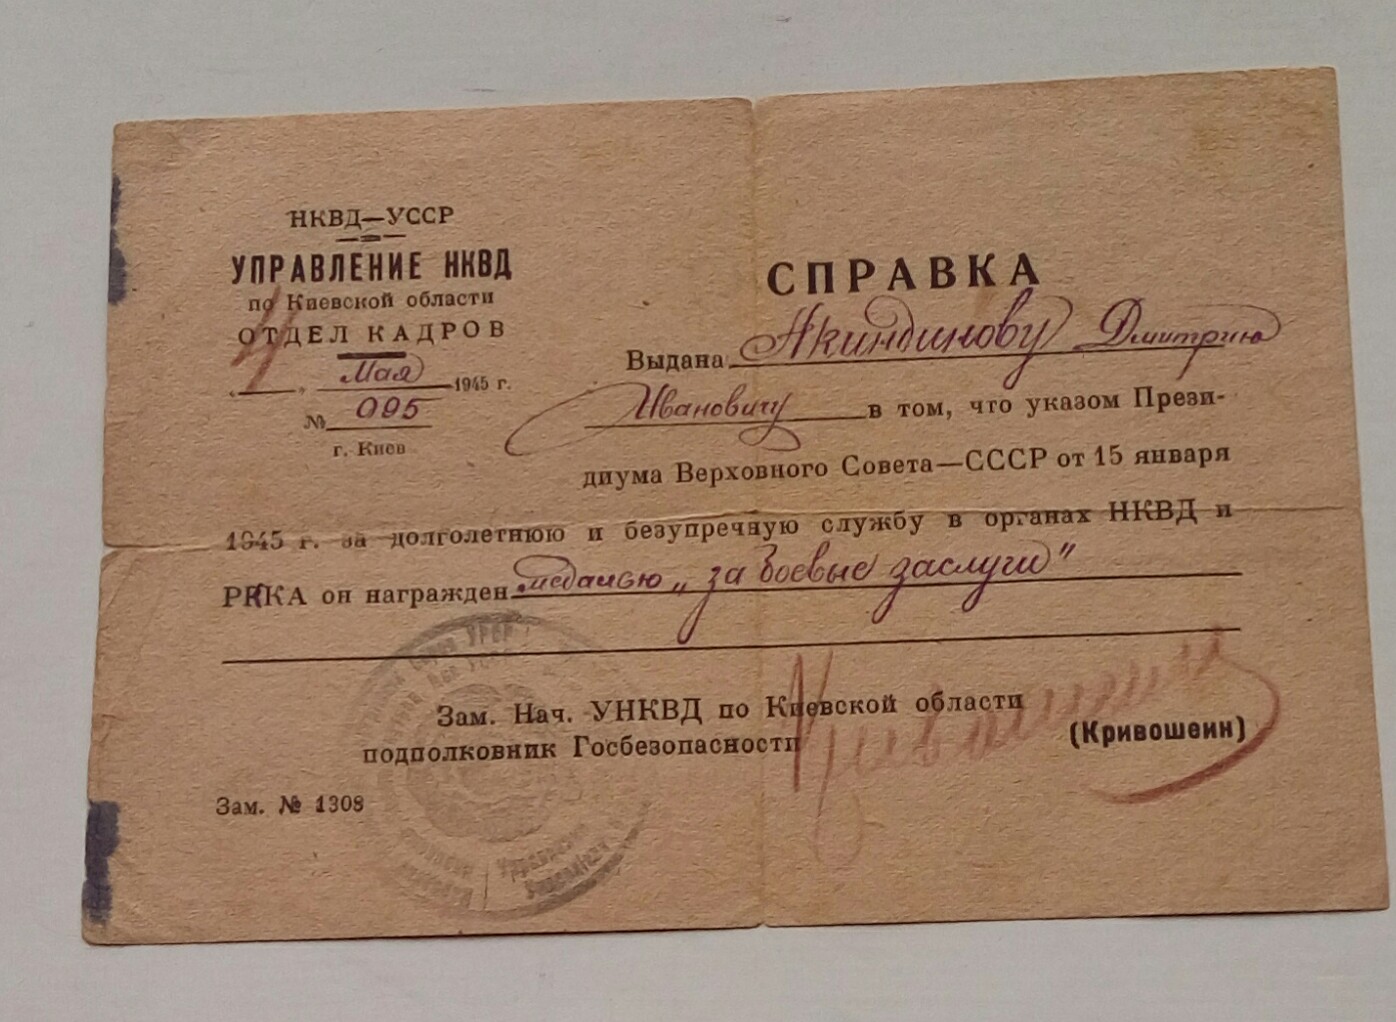 НКВД—УССР
УПРАВЛЕНИЕ НКВД
по Киевской области
ОТДЕЛ КАДРОВ
„ 4 " Мая 1945 г.
№ 095
г. Киев
СПРАВКА
Выдана Акиндинову Дмитрию
Ивановичу в том, что указом Прези-
диума Верховного Совета—СССР от 15 января
1945 г. за долголетнюю и безупречную службу в органах НКВД и
РККА он награжден медалью „за боевые заслуги"
Зам. Нач. УНКВД по Киевской области
подполковник Госбезопасности Кривошеин (Кривошеин)
Зам. № 1308